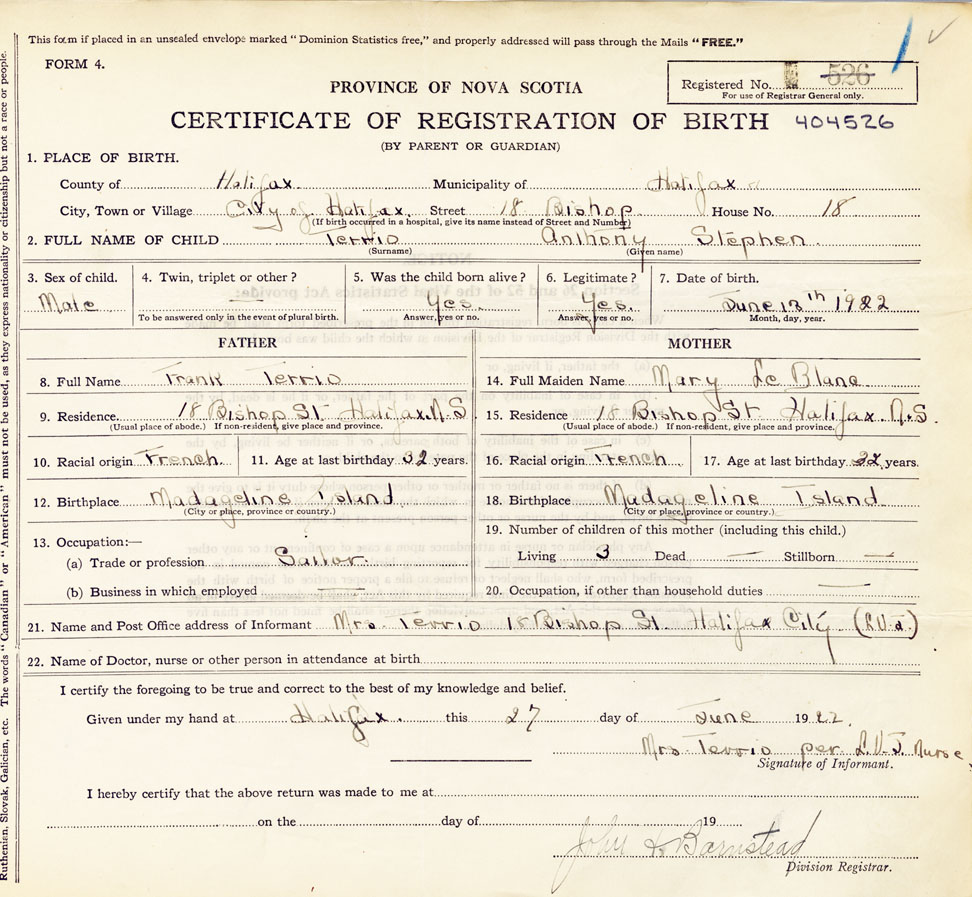 This form if placed in an unsealed envelope marked "Dominion Statistics free," and properly addressed will pass through the Mails "FREE."
FORM 4.
PROVINCE OF NOVA SCOTIA
Registered No. 526
For use of Registrar General only.
CERTIFICATE OF REGISTRATION OF BIRTH 404526
(BY PARENT OR GUARDIAN)
1. PLACE OF BIRTH.
County of Halifax Municipality of Halifax
City, Town or Village City of Halifax Street 18 Bishop House No. 18
(If birth occurred in a hospital, give its name instead of Street and Number)
2. FULL NAME OF CHILD Terrio Anthony Stephen
(Surname) (Given name)
3. Sex of child. 4. Twin, triplet or other? 5. Was the child born alive? 6. Legitimate? 7. Date of birth.
Male — Yes. Yes. June 13th 1922
To be answered only in the event of plural birth. Answer, yes or no. Answer, yes or no. Month, day, year.
FATHER MOTHER
8. Full Name Frank Terrio 14. Full Maiden Name Mary Le Blanc
9. Residence 18 Bishop St Halifax N.S 15. Residence 18 Bishop St Halifax N.S
(Usual place of abode.) If non-resident, give place and province. (Usual place of abode.) If non-resident, give place and province.
10. Racial origin French 11. Age at last birthday 32 years. 16. Racial origin French 17. Age at last birthday 22 years.
12. Birthplace Madageline Island 18. Birthplace Madageline Island
(City or place, province or country.) (City or place, province or country.)
13. Occupation:— 19. Number of children of this mother (including this child.)
(a) Trade or profession Sailor Living 3 Dead — Stillborn —
(b) Business in which employed — 20. Occupation, if other than household duties —
21. Name and Post Office address of Informant Mrs. Terrio 18 Bishop St. Halifax City
22. Name of Doctor, nurse or other person in attendance at birth
I certify the foregoing to be true and correct to the best of my knowledge and belief.
Given under my hand at Halifax. this 27 day of June 1922.
Mrs Terrio per Nurse
Signature of Informant.
I hereby certify that the above return was made to me at
on the day of 19
John Barnstead
Division Registrar.
Ruthenian, Slovak, Galician, etc. The words "Canadian" or "American" must not be used, as they express nationality or citizenship but not a race or people.